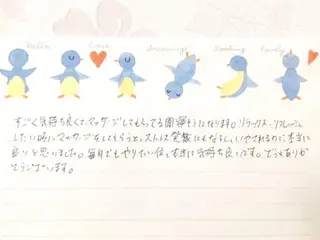 Hello
Love
Dreaming
Lovely
すごく気持ち良くて、マッサージしてもらってる間寝そうになります。リラックス、リフレッシュ
したい時にマッサージをしてもらうと、ストレス発散にもなるし、いやされるので本当に
良いと思いました。毎日でもやりたい位、本当に気持ち良いです。どうもありが
とうございます。